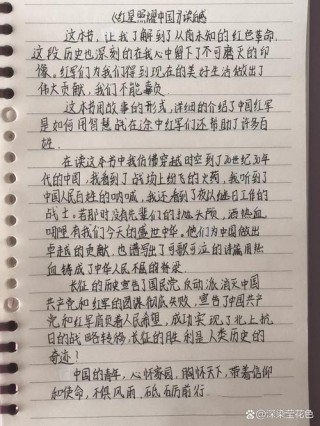 《红星照耀中国》读后感
这本书，让我了解到了从前未知的红色革命，
这段历史也深刻的在我心中留下了不可磨灭的印
像。红军们为我们得到现在的美好生活做出了
伟大贡献，我们不能辜负。
这本书用故事的形式，详细的介绍了中国红军
是如何用智慧战在途中红军们还帮助了许多百
姓。
在读这本书中我仿佛穿越时空到了20世纪30年
代的中国，我看到了战场上纷飞的火药，我听到了
中国人民百姓的呐喊，我还看到了夜以继日工作的
战士。若那时没有先辈们的抛头颅，洒热血
哪里有我们今天的盛世中华。他们为中国做出
卓越的贡献，也谱写出了可歌可泣的诗篇用热
血铸成了中华人民不屈的脊梁
长征的历史宣告了国民党，反动派消灭中国
共产党和红军的团谋彻底失败，宣告了中国共产
党和红军肩负着人民希望，成功实现了北上抗
日的战略转移，长征的胜利是人类历史的
奇迹！
中国的青年，心怀家国，胸怀天下，带着信仰
和使命，不惧风雨，砥砺前行
@深染莹花色